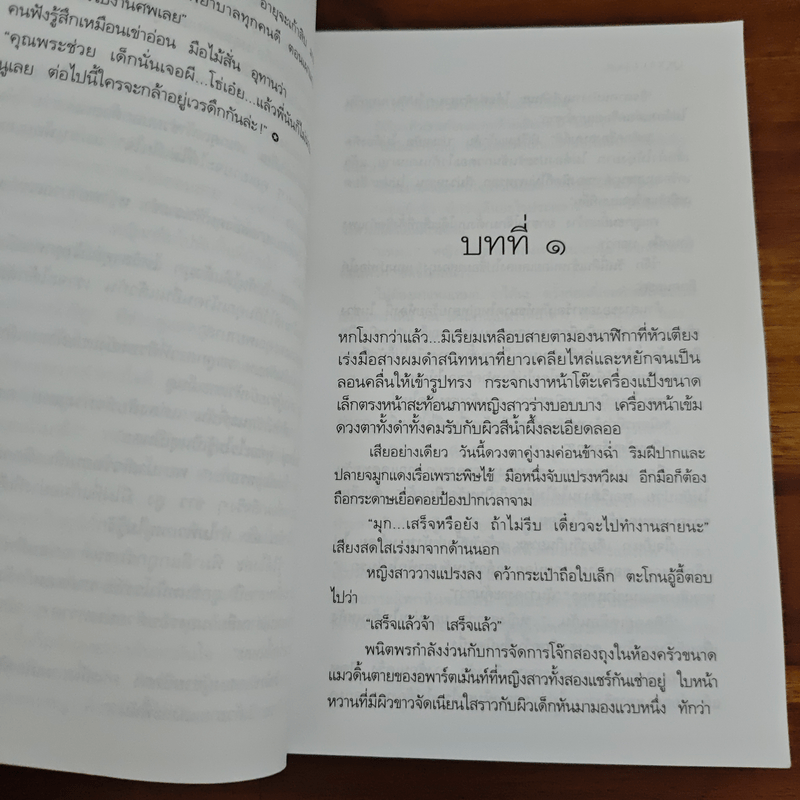 อายุจะเก้าสิบ
ไปงานศพเลย”
พยาบาลทุกคนดี
คนฟังรู้สึกเหมือนเข่าอ่อน มือไม้สั่น อุทานว่า
“คุณพระช่วย เด็กนั่นเจอผี...โธ่เอ๋ย...แล้วพี่นันก็ไม่
นูเลย ต่อไปนี้ใครจะกล้าอยู่เวรดึกกันล่ะ!”
บทที่ ๑
หกโมงกว่าแล้ว...มิเรียมเหลือบสายตามองนาฬิกาที่หัวเตียง
เร่งมือสางผมดำสนิทหนาที่ยาวเคลียไหล่และหยักจนเป็น
ลอนคลื่นให้เข้ารูปทรง กระจกเงาหน้าโต๊ะเครื่องแป้งขนาด
เล็กตรงหน้าสะท้อนภาพหญิงสาวร่างบอบบาง เครื่องหน้าเข้ม
ดวงตาทั้งดำทั้งคมรับกับผิวสีน้ำผึ้งละเอียดลออ
เสียอย่างเดียว วันนี้ดวงตาคู่งามค่อนข้างฉ่ำ ริมฝีปากและ
ปลายจมูกแดงเรื่อเพราะพิษไข้ มือหนึ่งจับแปรงหวีผม อีกมือก็ต้อง
ถือกระดาษเยื่อคอยป้องปากเวลาจาม
“มุก...เสร็จหรือยัง ถ้าไม่รีบ เดี๋ยวจะไปทำงานสายนะ”
เสียงสดใสเร่งมาจากด้านนอก
หญิงสาววางแปรงลง คว้ากระเป๋าถือใบเล็ก ตะโกนอู้อี้ตอบ
ไปว่า
“เสร็จแล้วจ้า เสร็จแล้ว”
พนิตพรกำลังง่วนกับการจัดการโจ๊กสองถุงในห้องครัวขนาด
แมวดิ้นตายของอพาร์ตเม้นท์ที่หญิงสาวทั้งสองแชร์กันเช่าอยู่ ใบหน้า
หวานที่มีผิวขาวจัดเนียนใสราวกับผิวเด็กหันมามองแวบหนึ่ง ทักว่า